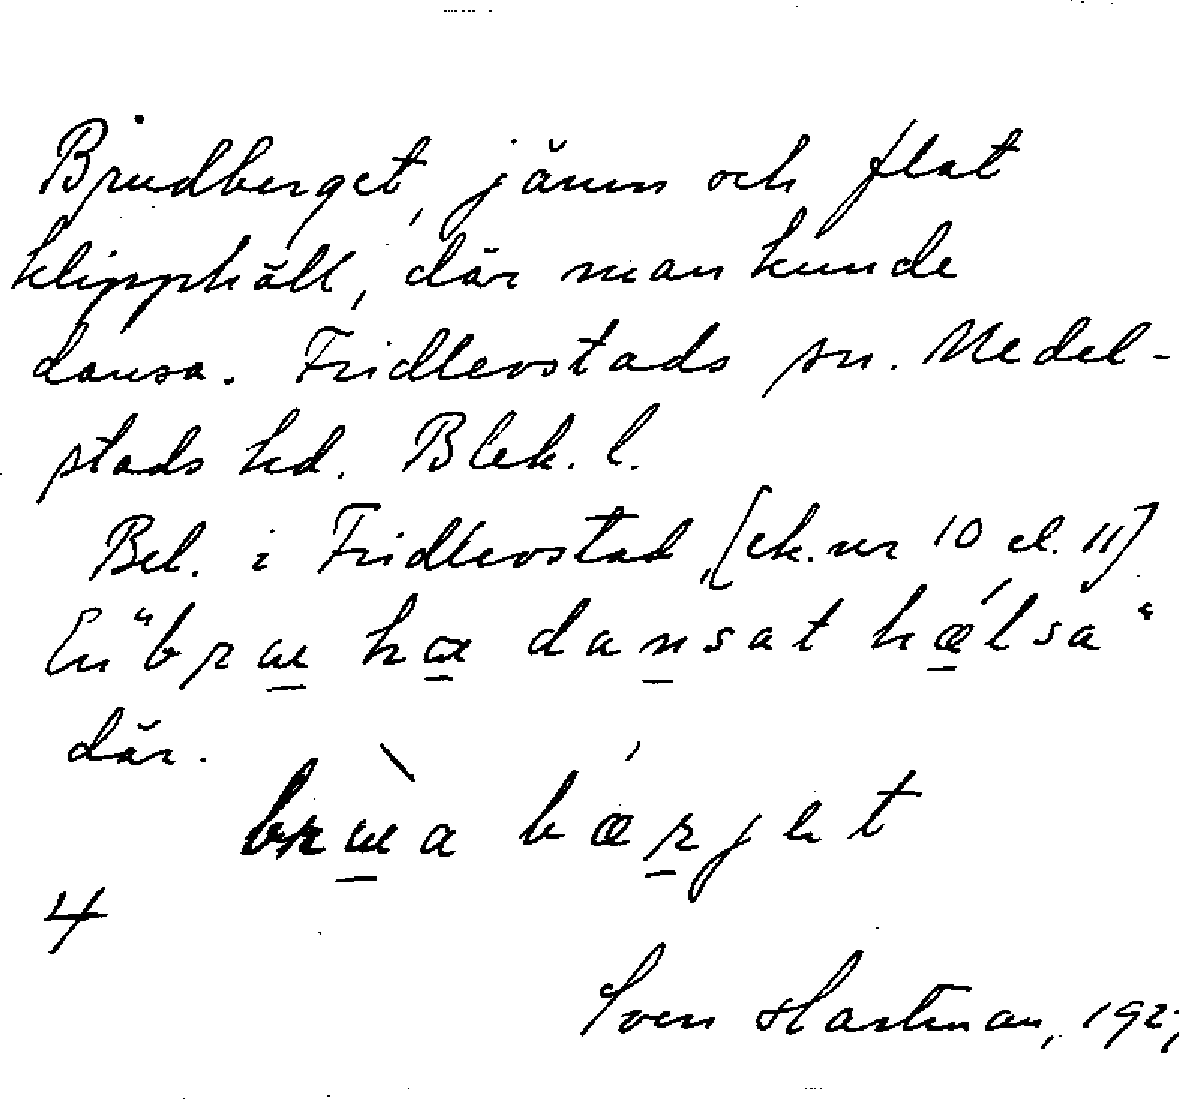 Brudberget, jämn och flat
klipphäll, där man kunde
dansa. Fridlevstads sn. Medel-
stads hd. Blek. l.
Bel. i Fridlevstad, [ek. nr 10 el. 11]
En "bræu hæ dansat hǽlsa"
där.
bræ̀ua bǽrjet
4
Sven Hartman, 1927